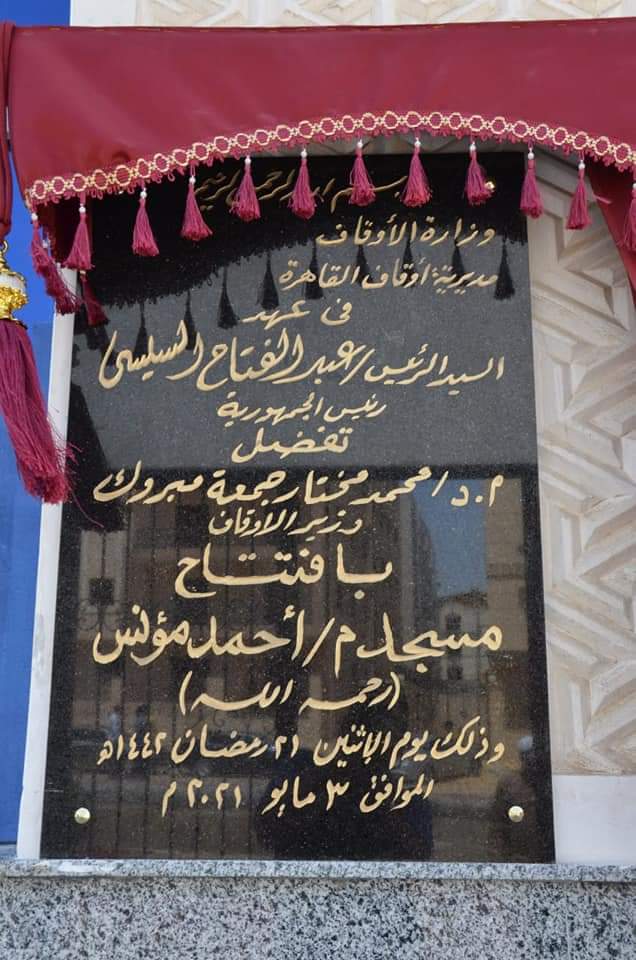 بسم الله الرحمن الرحيم
وزارة الأوقاف
مديرية أوقاف القاهرة
فى عهد
السيد الرئيس/عبد الفتاح السيسى
رئيس الجمهورية
تفضل
م.د/محمد مختار جمعة مبروك
وزير الاوقاف
بافتتاح
مسجد م/أحمد مؤنس
(رحمه الله)
وذلك يوم الإثنين ٢١ رمضان ١٤٤٢هـ
الموافق ٣ مايو ٢٠٢١ م